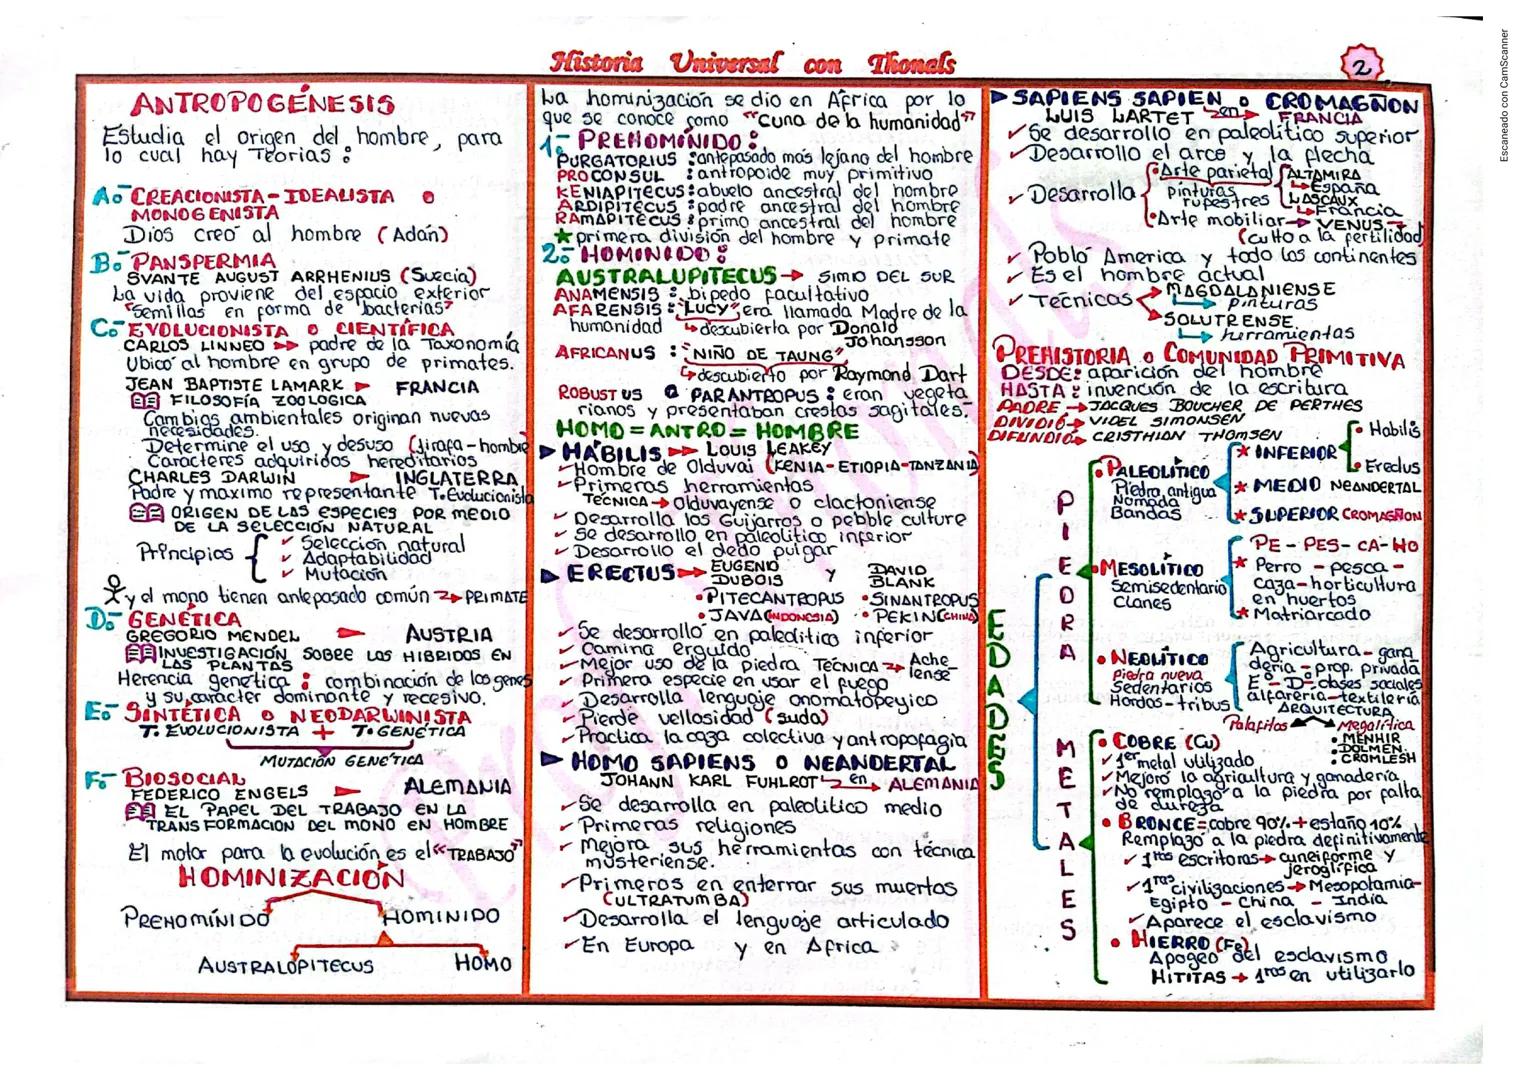 Historia Universal con Thonals
2
Escaneado con CamScanner
ANTROPOGÉNESIS
Estudia el origen del hombre, para
lo cual hay Teorias :
A.- CREACIONISTA - IDEALISTA o
MONOGENISTA
Dios creó al hombre (Adán)
B.- PANSPERMIA
SVANTE AUGUST ARRHENIUS (Suecia)
La vida proviene del espacio exterior
"Semillas en forma de bacterias"
C.- EVOLUCIONISTA O CIENTÍFICA
CARLOS LINNEO → padre de la Taxonomía
Ubicó al hombre en grupo de primates.
JEAN BAPTISTE LAMARK ► FRANCIA
FILOSOFÍA ZOOLOGICA
Cambios ambientales originan nuevas
necesidades.
Determine el uso y desuso (jirafa-hombre)
Caracteres adquiridos hereditarios
CHARLES DARWIN ► INGLATERRA
Padre y maximo representante T. Evolucionista
ORIGEN DE LAS ESPECIES POR MEDIO
DE LA SELECCIÓN NATURAL
Principios { ✓ Selección natural
✓ Adaptabilidad
✓ Mutación
y el mono tienen antepasado común → PRIMATE
D.- GENÉTICA
GREGORIO MENDEL ► AUSTRIA
INVESTIGACIÓN SOBRE LOS HIBRIDOS EN
LAS PLANTAS
Herencia genética : combinación de los genes
y su carácter dominante y recesivo.
E.- SINTÉTICA O NEODARWINISTA
T. EVOLUCIONISTA + T. GENÉTICA
MUTACIÓN GENÉTICA
F.- BIOSOCIAL
FEDERICO ENGELS ► ALEMANIA
EL PAPEL DEL TRABAJO EN LA
TRANSFORMACION DEL MONO EN HOMBRE
El motor para la evolución es el "TRABAJO"
HOMINIZACIÓN
PREHOMÍNIDO HOMINIDO
AUSTRALOPITECUS HOMO
La hominización se dio en África por lo
que se conoce como "Cuna de la humanidad"
1.- PREHOMÍNIDO :
PURGATORIUS : antepasado más lejano del hombre
PROCONSUL : antropoide muy primitivo
KENIAPITECUS : abuelo ancestral del hombre
ARDIPITECUS : padre ancestral del hombre
RAMAPITECUS : primo ancestral del hombre
★ primera división del hombre y primate
2.- HOMINIDO :
AUSTRALUPITECUS → SIMIO DEL SUR
ANAMENSIS : bípedo facultativo
AFARENSIS : "LUCY" era llamada Madre de la
humanidad ↳ descubierta por Donald
Johansson
AFRICANUS : "NIÑO DE TAUNG"
↳ descubierto por Raymond Dart
ROBUSTUS O PARANTROPUS : eran vegeta
rianos y presentaban crestas sagitales.
HOMO = ANTRO = HOMBRE
► HÁBILIS → LOUIS LEAKEY
✓ Hombre de Olduvai (KENIA - ETIOPIA - TANZANIA)
✓ Primeras herramientas
TECNICA → Olduvayense o clactoniense
✓ Desarrolla los Guijarros o pebble culture
✓ Se desarrollo en paleolitico inferior
✓ Desarrollo el dedo pulgar
► ERECTUS → EUGENIO DAVID
DUBOIS y BLANK
• PITECANTROPUS • SINANTROPUS
• JAVA (INDONESIA) • PEKIN (CHINA)
✓ Se desarrolló en paleolitico inferior
✓ Camina erguido
✓ Mejor uso de la piedra TECNICA → Ache-
lense
✓ Primera especie en usar el fuego
✓ Desarrolla lenguaje onomatopeyico
✓ Pierde vellosidad (suda)
✓ Practica la caza colectiva y antropofagia
► HOMO SAPIENS O NEANDERTAL
JOHANN KARL FUHLROT en → ALEMANIA
✓ Se desarrolla en paleolitico medio
✓ Primeras religiones
✓ Mejora sus herramientas con técnica
musteriense.
✓ Primeros en enterrar sus muertos
(ULTRATUMBA)
✓ Desarrolla el lenguaje articulado
✓ En Europa y en Africa
► SAPIENS SAPIEN o CROMAGÑON
LUIS LARTET en → FRANCIA
✓ Se desarrollo en paleolitico superior
✓ Desarrollo el arco y la flecha
✓ Desarrolla { • Arte parietal { ALTAMIRA
pinturas ↳ España
rupestres LASCAUX
↳ Francia
• Arte mobiliar → VENUS →
(culto a la fertilidad)
✓ Pobló America y todo los continentes
✓ Es el hombre actual
✓ Técnicas MAGDALANIENSE
↳ pinturas
SOLUTRENSE
↳ herramientas
PREHISTORIA O COMUNIDAD PRIMITIVA
DESDE : aparición del hombre
HASTA : invención de la escritura
PADRE → JACQUES BOUCHER DE PERTHES
DIVIDIÓ → VIDEL SIMONSEN
DIFUNDIÓ → CRISTHIAN THOMSEN
EDADES
PIEDRA
• PALEOLÍTICO
Piedra antigua
Nomada
Bandas
★ INFERIOR { • Habilis
• Erectus
★ MEDIO NEANDERTAL
★ SUPERIOR CROMAGÑON
• MESOLÍTICO
Semisedentario
Clanes
PE - PES - CA - HO
★ Perro - pesca -
caza - horticultura
en huertos
★ Matriarcado
• NEOLÍTICO
Piedra nueva
Sedentarios
Hordas - tribus
Agricultura - gana
deria - prop. privada
E° - D° - clases sociales
alfareria - textileria
ARQUITECTURA
Palafitos Megalítica
• MENHIR
• DOLMEN
• CROMLESH
METALES
• COBRE (Cu)
✓ 1er metal utilizado
✓ Mejoró la agricultura y ganadería
✓ No remplazó a la piedra por falta
de dureza
• BRONCE = cobre 90% + estaño 10%
Remplazó a la piedra definitivamente
✓ 1ras escritoras → cuneiforme y
jeroglífica
✓ 1ras civilizaciones → Mesopotamia -
Egipto - China - India
✓ Aparece el esclavismo
• HIERRO (Fe)
Apogeo del esclavismo
HITITAS → 1ros en utilizarlo